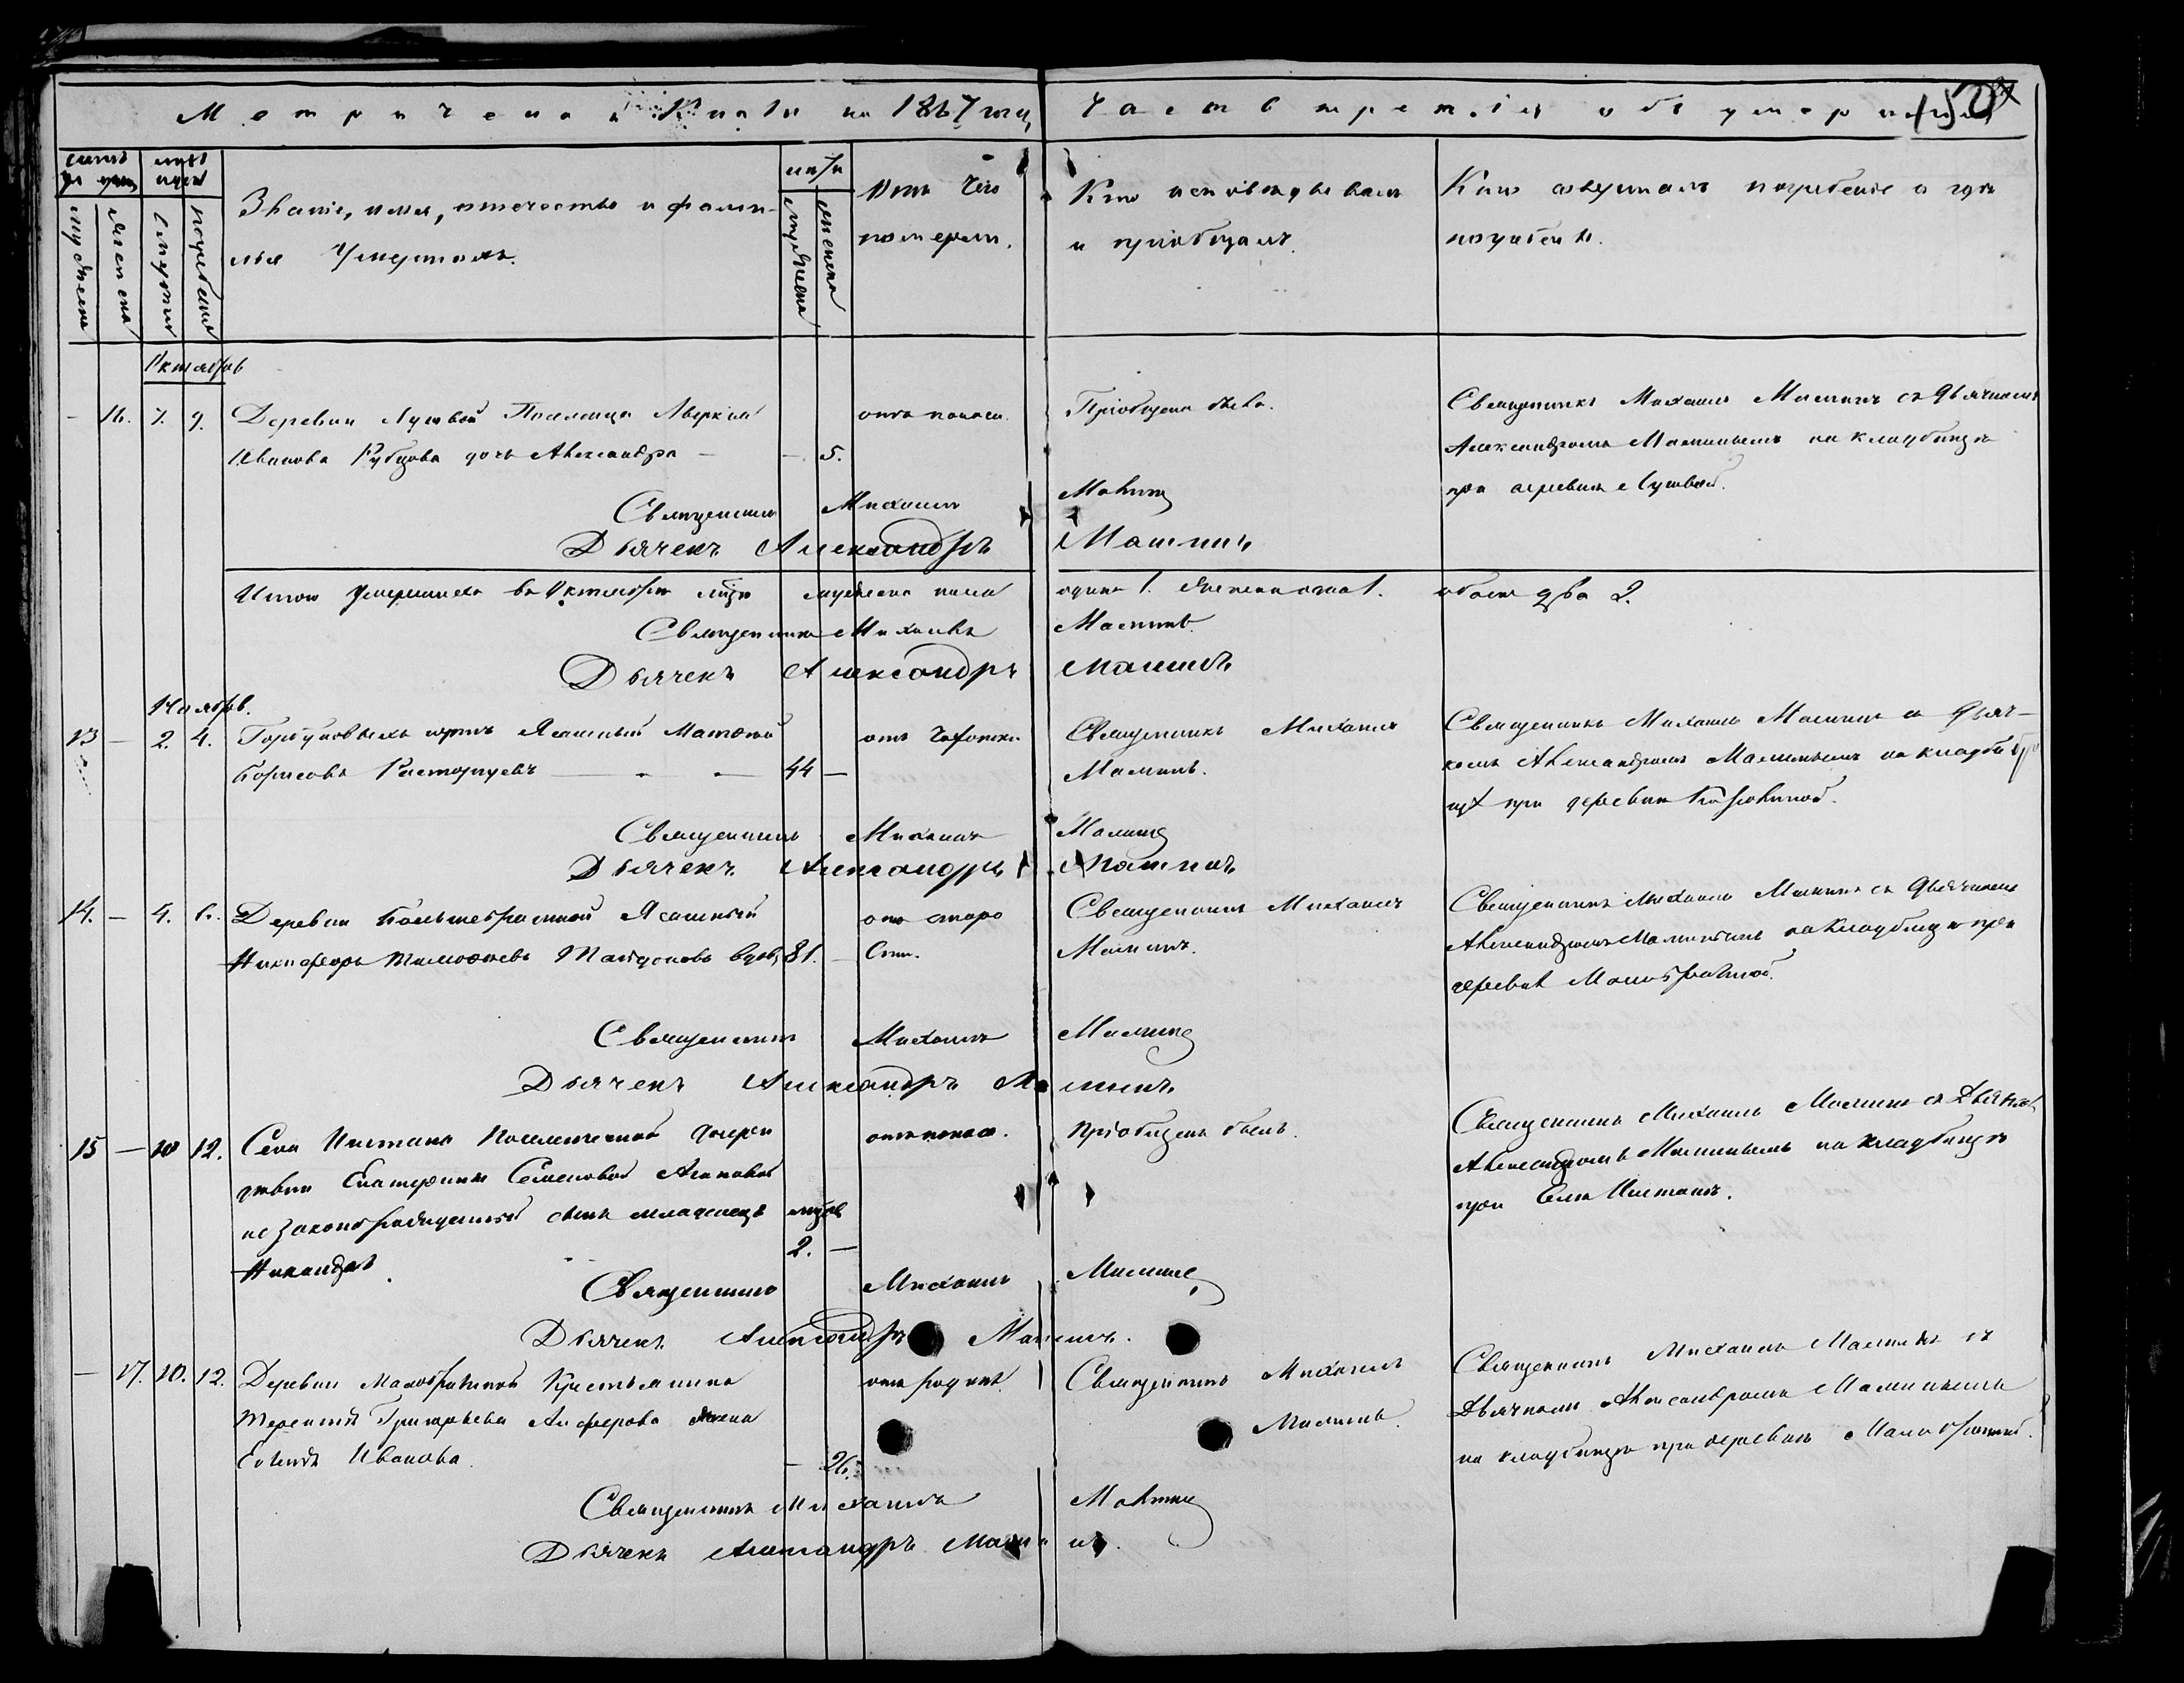 Метрическая Книга на 1867 годъ, Часть третія объ умершихъ
150
Счетъ умер. мужеска женска
Мѣсяцъ смерти погребенія
Званіе, имя, отчество и фами-
лія Умершихъ.
лѣта мужеска женска
Отъ чего
померъ.
Кто исповѣдывалъ
и пріобщалъ.
Кто совершалъ погребеніе и гдѣ
погребены.
Октябрь
— 16. 7. 9. Деревни Поселенца Аверкія
Иванова Рубцова дочь Александра — — 5.
отъ поноса.
Пріобщена была.
Священникъ Михаилъ Малининъ съ дьячкомъ
Александромъ Малининымъ на кладбищѣ
при деревнѣ
Священникъ Михаилъ Малининъ
Дьячекъ Александръ Малининъ
Итого умершихъ въ Октябрѣ м-цѣ мужеска пола одинъ 1. женска одна 1. обоего два 2.
Священникъ Михаилъ Малининъ
Дьячекъ Александръ Малининъ
Ноябрь.
13 — 2. 4. Горбуновыхъ юртъ Ясашный Матвѣй
Борисовъ Расторгуевъ — 44 —
отъ чахотки
Священникъ Михаилъ
Малининъ.
Священникъ Михаилъ Малининъ съ дьяч-
комъ Александромъ Малининымъ на кладби-
щѣ при деревнѣ
Священникъ Михаилъ Малининъ
Дьячекъ Александръ Малининъ
14. — 4. 6. Деревни Большебрагиной Ясашный
Никифоръ Тимофеевъ вдов. 81. —
отъ старо
сти.
Священникъ Михаилъ
Малининъ.
Священникъ Михаилъ Малининъ съ дьячкомъ
Александромъ Малининымъ на кладбищѣ при
деревнѣ Малобрагиной.
Священникъ Михаилъ Малининъ
Дьячекъ Александръ Малининъ
15 — 10 12. Села Иштана Поселенческой дочери
дѣвки Екатерины Семеновой
незаконорожденный сынъ младенецъ мѣсяц.
Никандръ 2. —
отъ поноса.
Пріобщенъ былъ.
Священникъ Михаилъ Малининъ съ Дьячкомъ
Александромъ Малининымъ на кладбищѣ
при Селѣ Иштанѣ.
Священникъ Михаилъ Малининъ
Дьячекъ Александръ Малининъ.
— 17. 10. 12. Деревни Малобрагиной Крестьянина
Терентія Григорьева Алферова жена
Ивановa — 26.
отъ родовъ.
Священникъ Михаилъ
Малининъ.
Священникъ Михаилъ Малининъ съ
Дьячкомъ Александромъ Малининымъ
на кладбищѣ при деревнѣ Малобрагиной.
Священникъ Михаилъ Малининъ
Дьячекъ Александръ Малининъ.